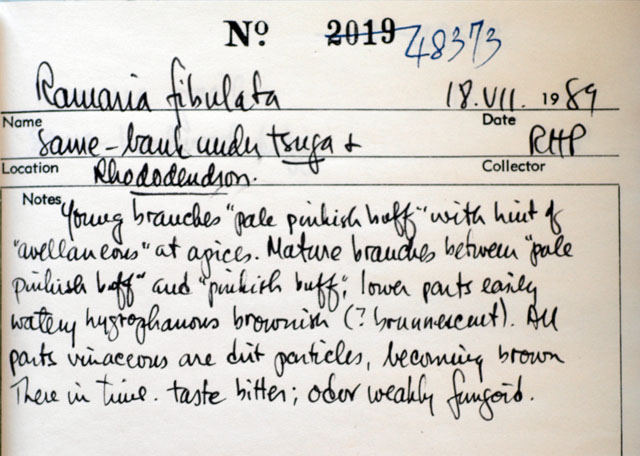 Nº 2019 48373
Ramaria fibulata 18.VII. 1989
Name Date
Same-bank under Tsuga + RHP
Location Collector
Rhododendron.
Notes Young branches "pale pinkish buff" with hint of
"avellaneous" at apices. Mature branches between "pale
pinkish buff" and "pinkish buff"; lower parts easily
watery hygrophanous brownish (? brunnescent). All
parts vinaceous are dirt particles, becoming brown
there in time. taste bitter; odor weakly fungoid.